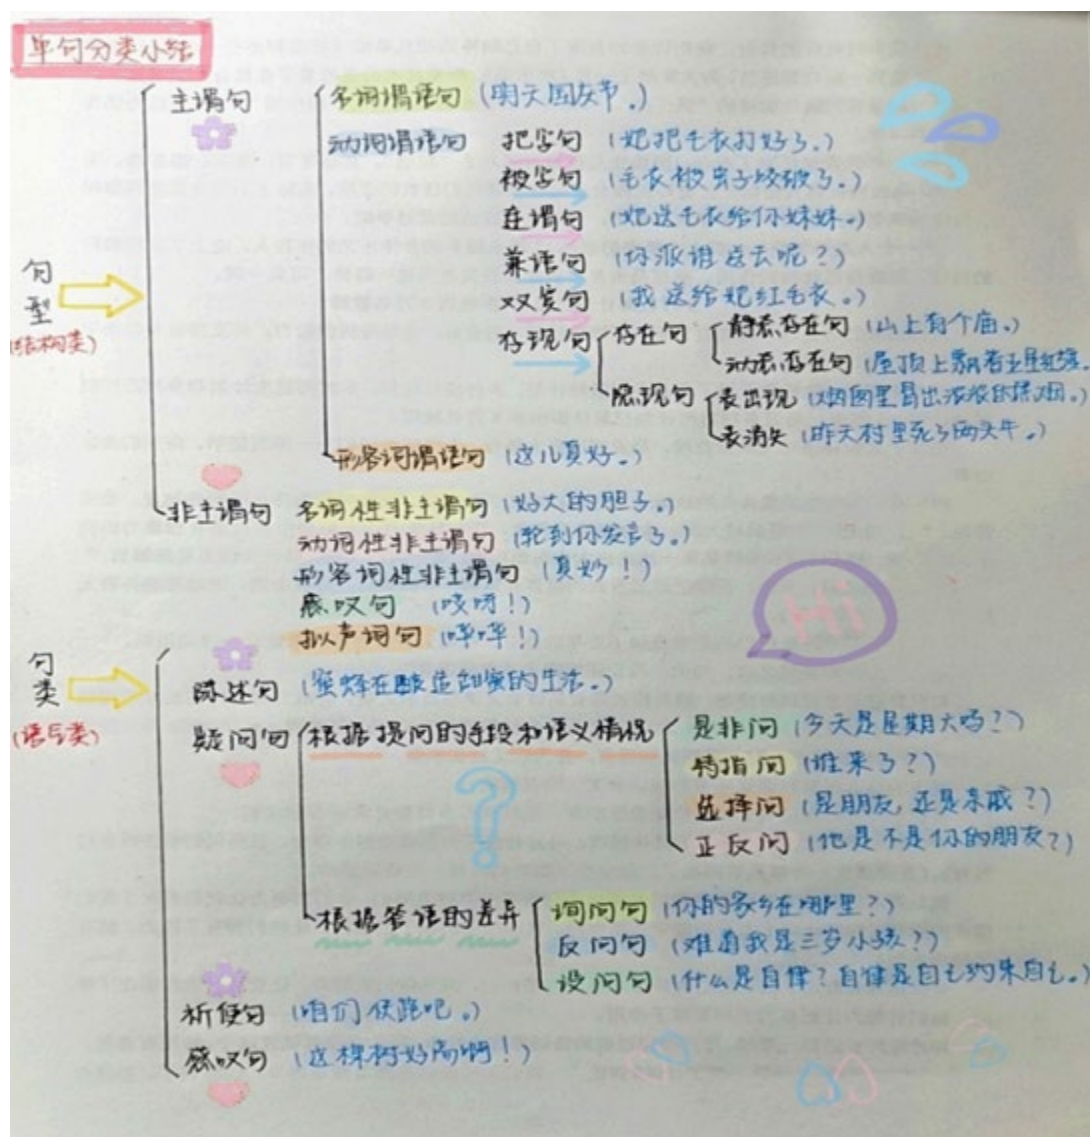 单句分类小结
主谓句
名词谓语句 (明天国庆节。)
动词谓语句 把字句 (她把毛衣打好了。)
被字句 (毛衣被虫子咬破了。)
连谓句 (她送毛衣给你妹妹。)
兼语句 (你派谁送去呢?)
双宾句 (我送给她红毛衣。)
存现句 存在句 静态存在句 (山上有个庙。)
动态存在句 (屋顶上飘着五星红旗。
隐现句 表出现 (烟囱里冒出浓浓的黑烟。)
表消失 (昨天村里死了两头牛。)
形容词谓语句 (这儿真好。)
句型
(结构类)
非主谓句 名词性非主谓句 (好大的胆子。)
动词性非主谓句 (轮到你发言了。)
形容词性非主谓句 (真妙!)
感叹句 (哎呀!)
拟声词句 (哗哗!)
Hi
句类
(语气类)
陈述句 (蜜蜂在酿造甜蜜的生活。)
疑问句 根据提问的手段和语义情况 是非问 (今天是星期六吗?)
特指问 (谁来了?)
选择问 (是朋友 还是亲戚?)
正反问 (他是不是你的朋友?)
?
根据答语的差异 询问句 (你的家乡在哪里?)
反问句 (难道我是三岁小孩?)
设问句 (什么是自律?自律是自己约束自己。)
祈使句 (咱们 跑吧。)
感叹句 (这棵树好高啊!)